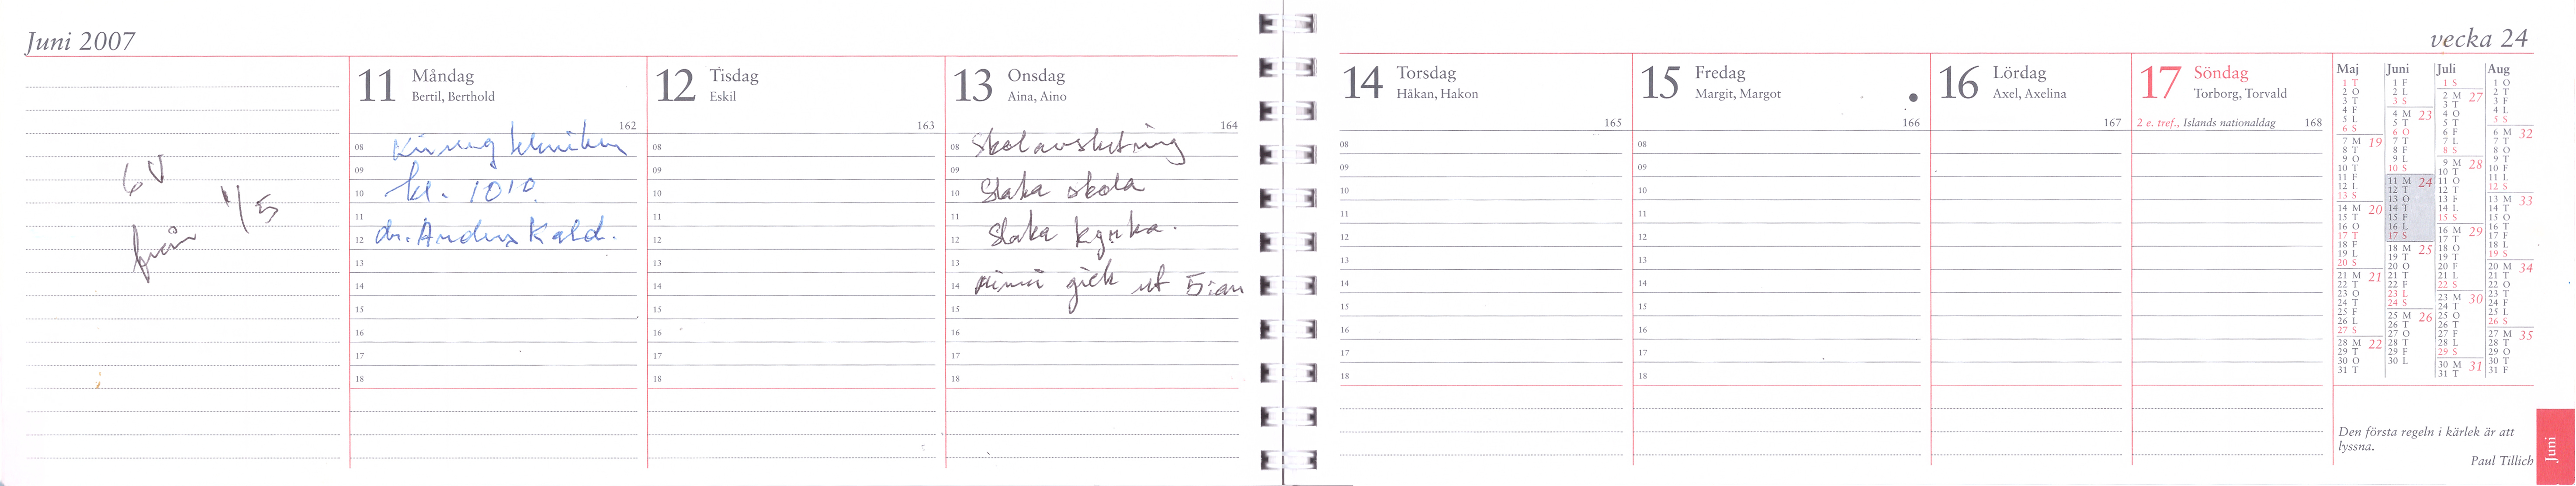 Juni 2007
6 V
från 1/5
11 Måndag
Bertil, Berthold
162
08 Kirurg kliniken
09
10 kl. 1010
11
12 dr. Anders Kald.
13
14
15
16
17
18
12 Tisdag
Eskil
163
08
09
10
11
12
13
14
15
16
17
18
13 Onsdag
Aina, Aino
164
08 Skolavslutning
09
10 Slaka skola
11
12 Slaka kyrka.
13
14 gick ut 5:an
15
16
17
18
14 Torsdag
Håkan, Hakon
165
08
09
10
11
12
13
14
15
16
17
18
15 Fredag
Margit, Margot
166
08
09
10
11
12
13
14
15
16
17
18
16 Lördag
Axel, Axelina
167
17 Söndag
Torborg, Torvald
2 e. tref., Islands nationaldag 168
vecka 24
Maj
1 T
2 O
3 T
4 F
5 L
6 S
7 M 19
8 T
9 O
10 T
11 F
12 L
13 S
14 M 20
15 T
16 O
17 T
18 F
19 L
20 S
21 M 21
22 T
23 O
24 T
25 F
26 L
27 S
28 M 22
29 T
30 O
31 T
Juni
1 F
2 L
3 S
4 M 23
5 T
6 O
7 T
8 F
9 L
10 S
11 M 24
12 T
13 O
14 T
15 F
16 L
17 S
18 M 25
19 T
20 O
21 T
22 F
23 L
24 S
25 M 26
26 T
27 O
28 T
29 F
30 L
Juli
1 S
2 M 27
3 T
4 O
5 T
6 F
7 L
8 S
9 M 28
10 T
11 O
12 T
13 F
14 L
15 S
16 M 29
17 T
18 O
19 T
20 F
21 L
22 S
23 M 30
24 T
25 O
26 T
27 F
28 L
29 S
30 M 31
31 T
Aug
1 O
2 T
3 F
4 L
5 S
6 M 32
7 T
8 O
9 T
10 F
11 L
12 S
13 M 33
14 T
15 O
16 T
17 F
18 L
19 S
20 M 34
21 T
22 O
23 T
24 F
25 L
26 S
27 M 35
28 T
29 O
30 T
31 F
Den första regeln i kärlek är att
lyssna.
Paul Tillich
Juni